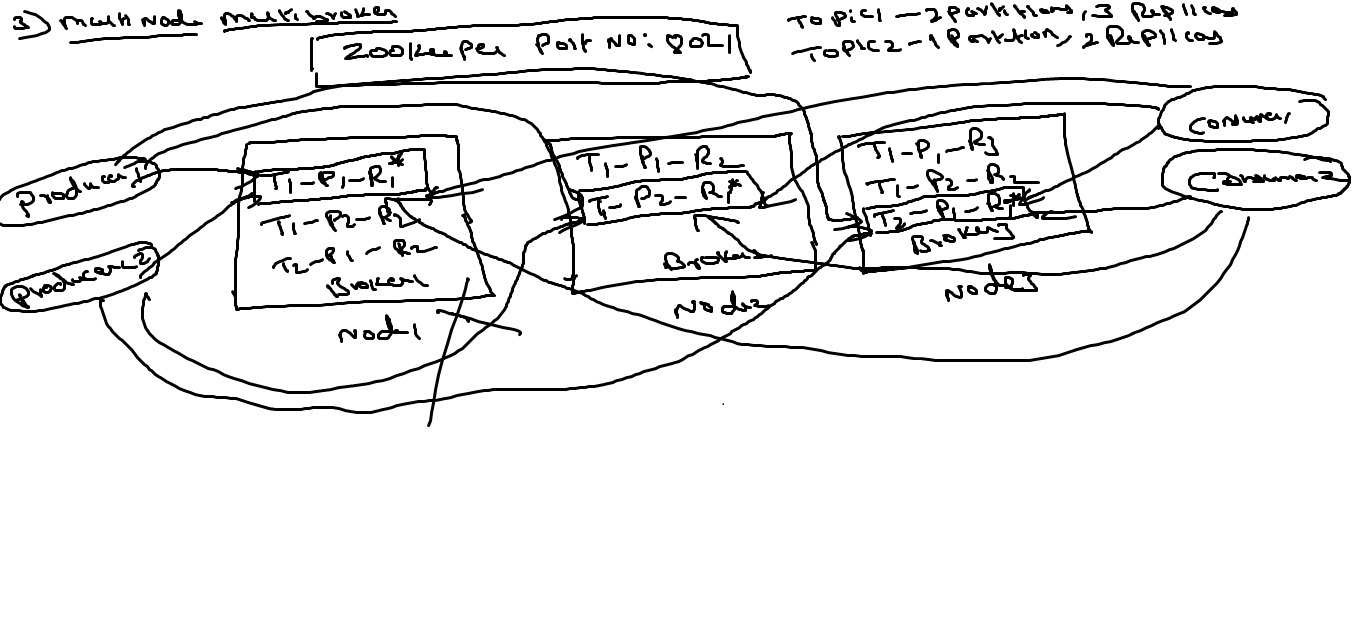 3) Multi Node Multi broker
Topic1 - 2 partitions, 3 Replicas
Topic2 - 1 Partition, 2 Replicas
Zookeeper Port No: 2021
Producer1
Producer2
T1-P1-R1*
T1-P2-R2
T2-P1-R2
Broker1
Node1
T1-P1-R2
T1-P2-R1*
Broker2
Node2
T1-P1-R3
T1-P2-R2
T2-P1-R1*
Broker3
Node3
Consumer1
Consumer2